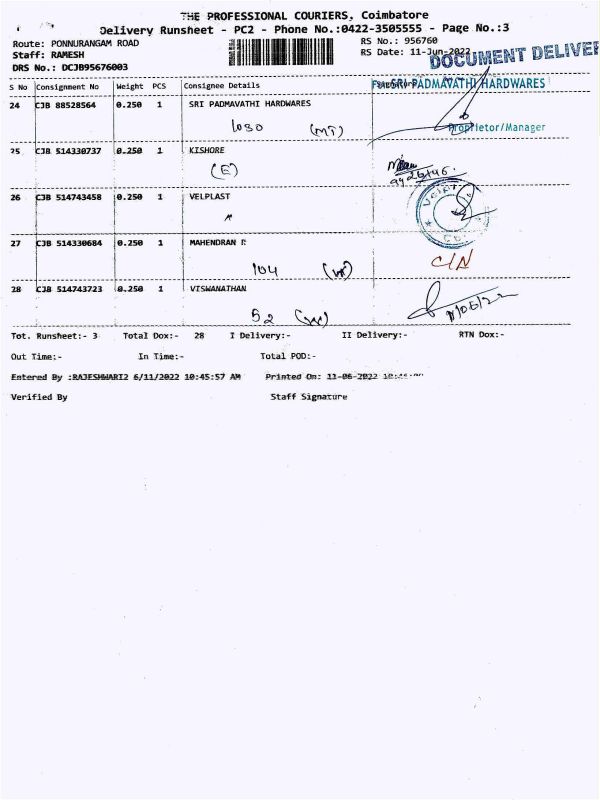 THE PROFESSIONAL COURIERS, Coimbatore
Delivery Runsheet - PC2 - Phone No.:0422-3505555 - Page No.:3
Route: PONNURANGAM ROAD
RS No.: 956760
Staff: RAMESH
RS Date: 11-Jun-2022
DOCUMENT DELIVER
DRS No.: DCJB95676003
S No Consignment No Weight PCS Consignee Details
For SRI PADMAVATHI HARDWARES
24 CJB 88528564 0.250 1 SRI PADMAVATHI HARDWARES
1030 (MT)
Proprietor/Manager
25 CJB 514330737 0.250 1 KISHORE
(E)
26 CJB 514743458 0.250 1 VELPLAST
27 CJB 514330684 0.250 1 MAHENDRAN P
104
C/N
28 CJB 514743723 0.250 1 VISWANATHAN
52
11/06/22
Tot. Runsheet:- 3 Total Dox:- 28 I Delivery:- II Delivery:- RTN Dox:-
Out Time:- In Time:- Total POD:-
Entered By :RAJESHWARI2 6/11/2022 10:45:57 AM Printed On: 11-06-2022
Verified By Staff Signature